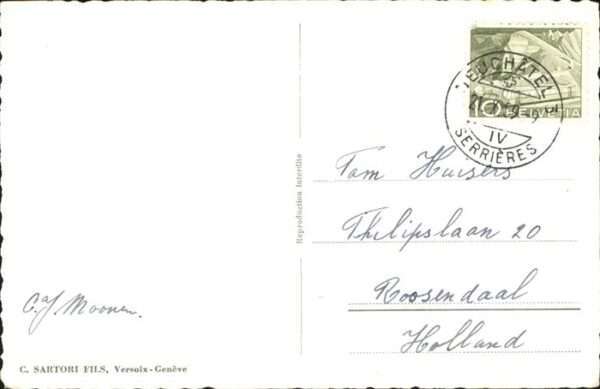 NEUCHÂTEL
IV
SERRIÈRES
10 HELVETIA
Reproduction interdite
Tom Huisers
Philipslaan 20
Roosendaal
Holland
Moonen.
C. SARTORI FILS, Versoix-Genève